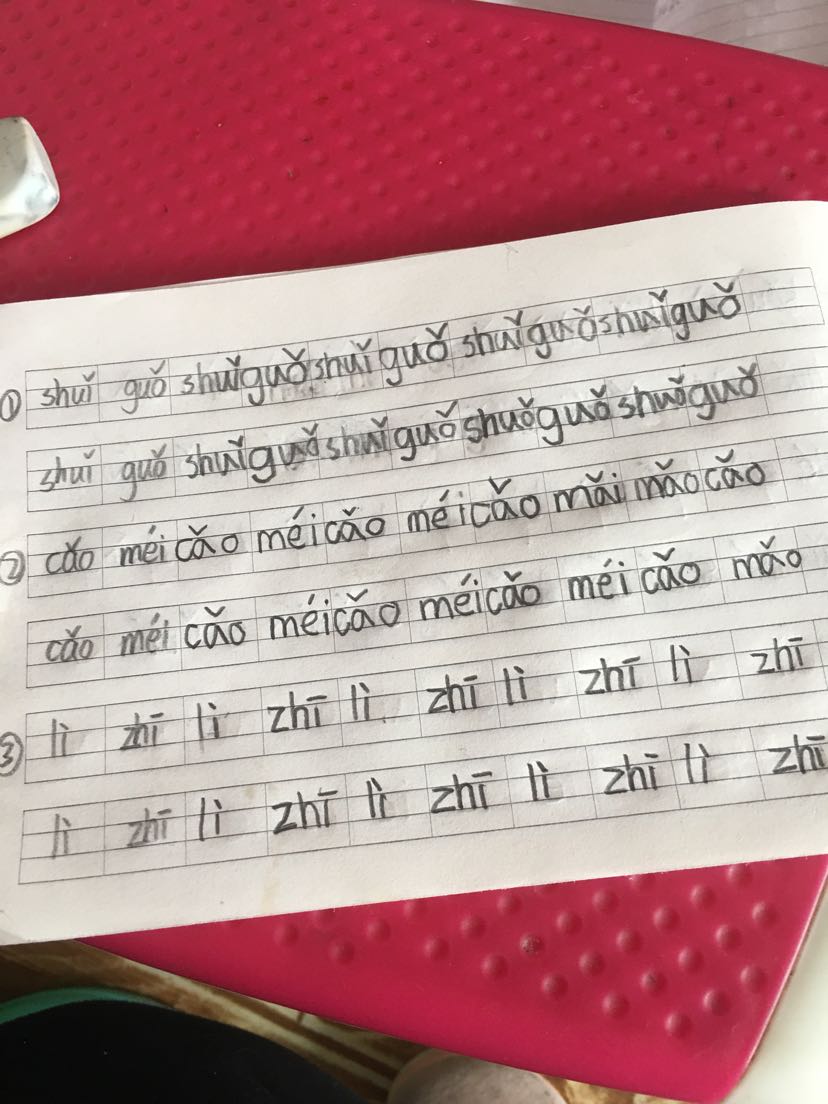 ① shuǐ guǒ shuǐguǒ shuǐ guǒ shuǐguǒ shuǐguǒ
shuǐ guǒ shuǐguǒ shuǐguǒ shuǒguǒ shuǐguǒ
② cǎo méi cǎo méi cǎo méi cǎo mǎi mǎo cǎo
cǎo méi cǎo méi cǎo méi cǎo méi cǎo mǎo
③ lì zhī lì zhī lì zhī lì zhī lì zhī
lì zhī lì zhī lì zhī lì zhī lì zhī